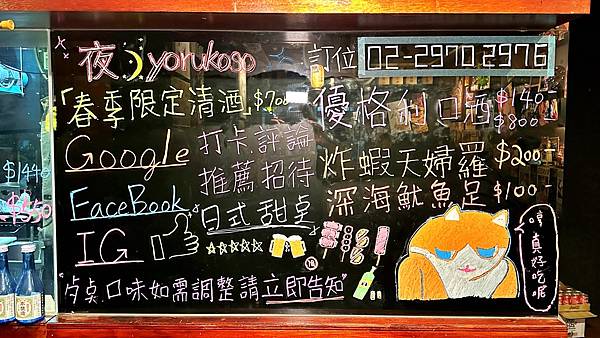 夜 yorukoso 訂位 02-2970 2976
「春季限定清酒」$700
優格利口酒 $140- $800-
Google
FaceBook
IG
打卡.評論
推薦 招待
日式甜桌
☆☆☆☆☆
炸蝦天婦羅 $200
深海魷魚足 $100-
哼真好吃喔
18
"桌口味如需調整請立即告知"
$1440
$350